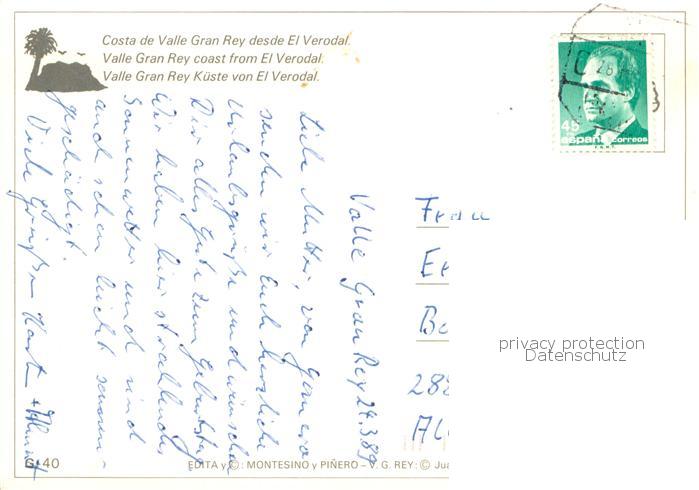 Costa de Valle Gran Rey desde El Verodal.
Valle Gran Rey coast from El Verodal.
Valle Gran Rey Küste von El Verodal.
45
españa correos
Valle Gran Rey 24.3.89
Liebe Mutter, von Gomera
senden wir Euch herzliche
Urlaubsgrüße und wünschen
Dir alles Gute zum Geburtstag
Wir haben hier strahlendes
Sonnenwetter und sind
auch schon leicht sonnen-
geschädigt.
Viele Grüße
Frau
288
privacy protection
Datenschutz
G-40
EDITA y ©: MONTESINO y PIÑERO – V. G. REY: © Jua